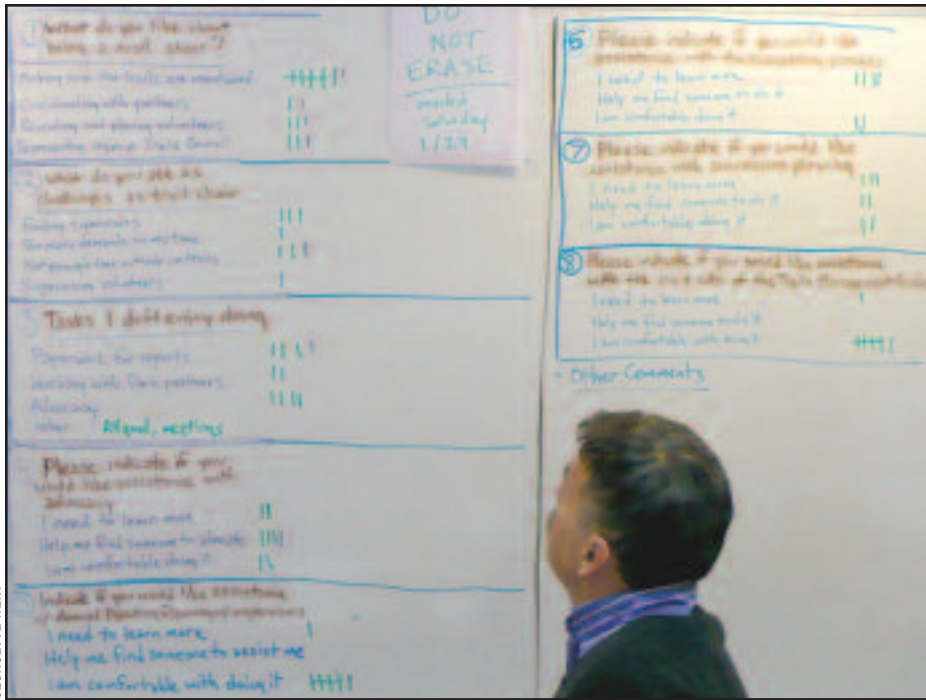 ① What do you like about
being a trail chair?
Making sure the trails are maintained
Coordinating with partners
Recruiting and placing volunteers
Representing region on Trails Council
2 What do you see as
challenges as trail chair
Finding supervisors
demands on my time
Not enough time
Supervising volunteers
3 Tasks I don't enjoy doing
Paperwork for reports
Working with Park partners
Advocacy
other
meetings
4 Please indicate if you
would like assistance with
advocacy
I need to learn more
Help me find someone to
I am comfortable doing it
5 Indicate if you would like assistance
I need to learn more
Help me find someone to assist me
I am comfortable with doing it
DO
NOT
ERASE
needed
Saturday
1/29
6 Please indicate if you would like
assistance with the
I need to learn more
Help me find someone to do it
I am comfortable doing it
⑦ Please indicate if you would like
assistance with
I need to learn more
Help me find someone to do it
I am comfortable doing it
⑧ Please indicate if you would like assistance
with the
I need to learn more
Help me find someone to do it
I am comfortable with doing it
- Other Comments